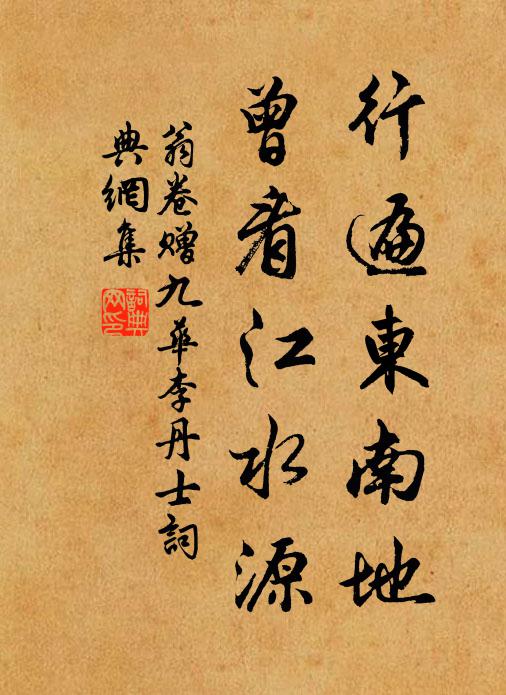 行遍東南地
曾看江水源
翁卷贈九華李丹士詞
典網集
詞典
网印